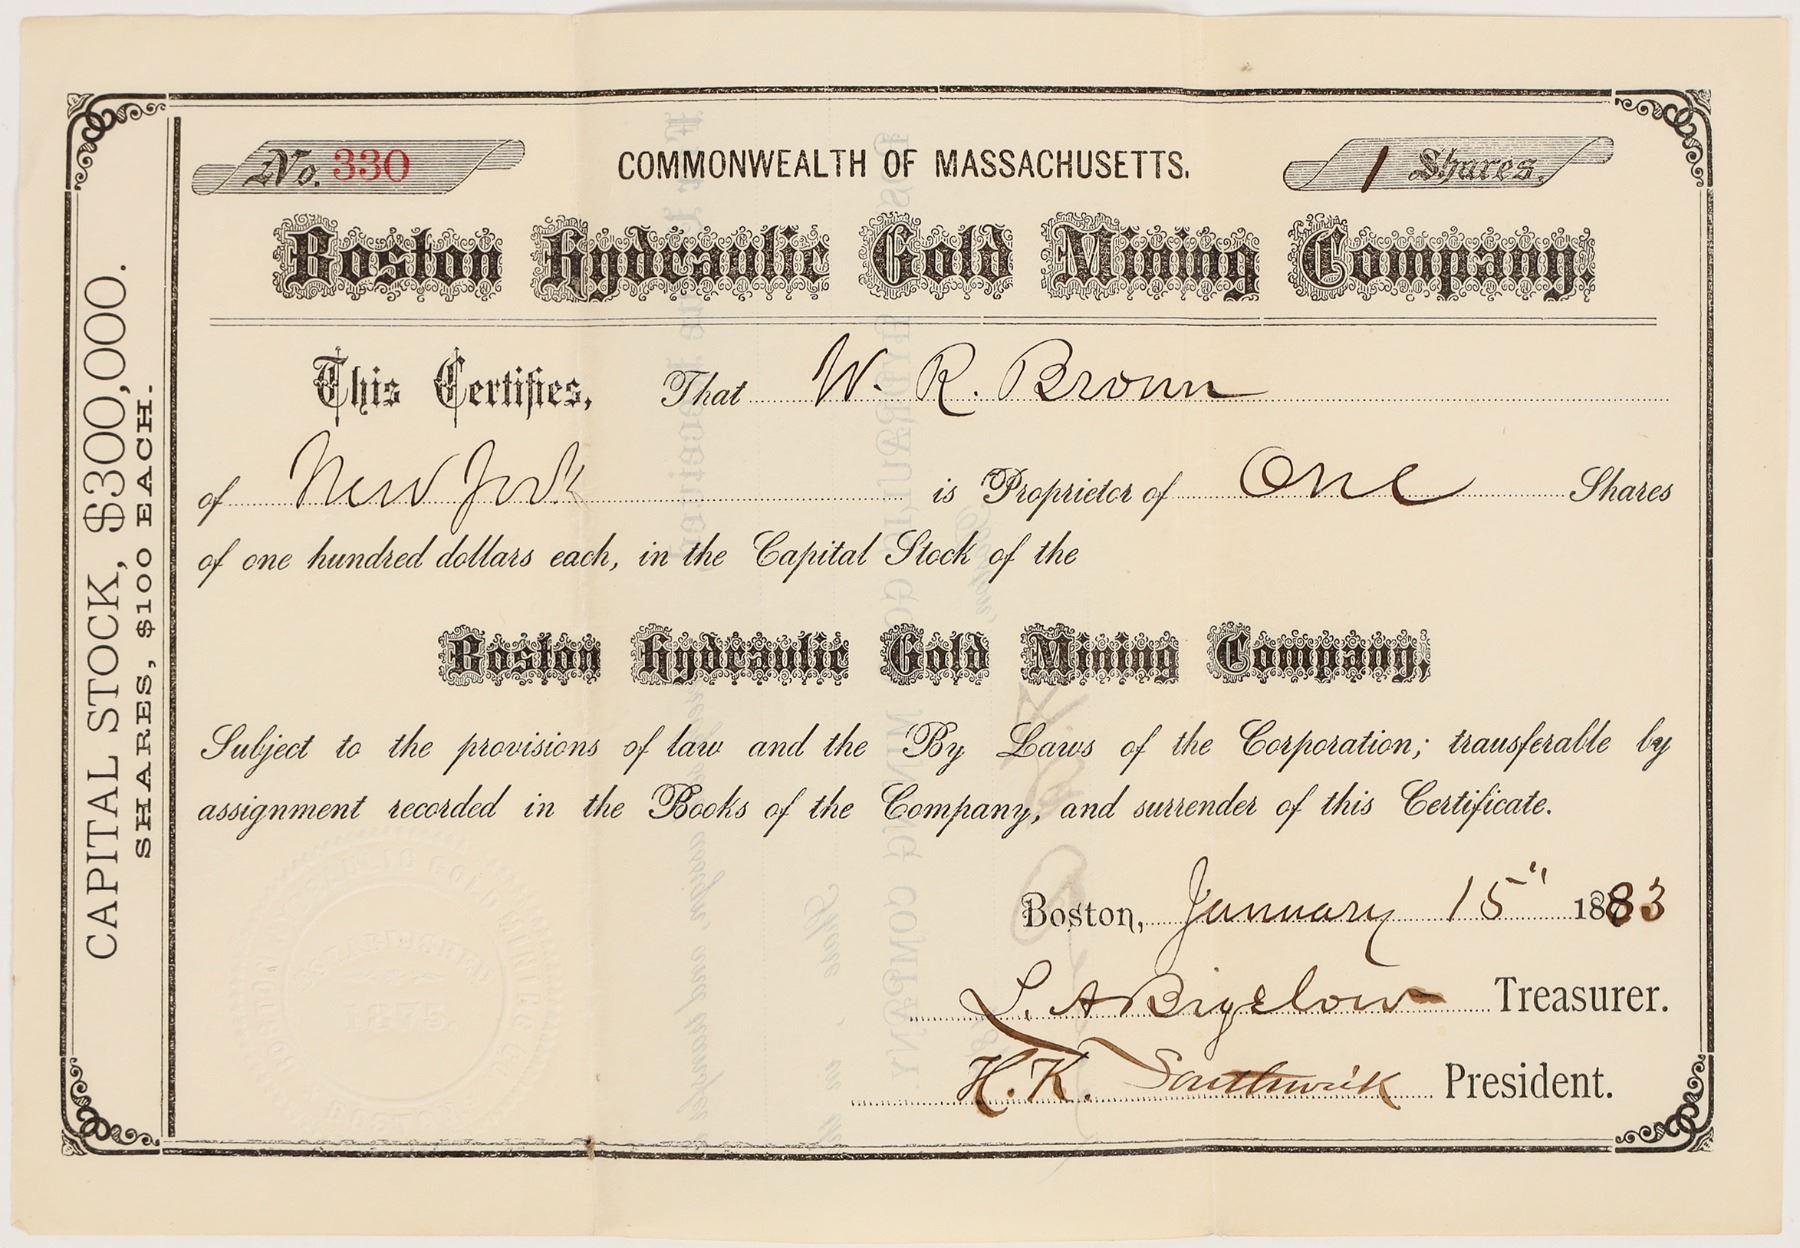 No. 330
COMMONWEALTH OF MASSACHUSETTS.
1 Shares.
Boston Hydraulic Gold Mining Company.
This Certifies, That W. R. Brown
of New York is Proprietor of One Shares
of one hundred dollars each, in the Capital Stock of the
Boston Hydraulic Gold Mining Company,
Subject to the provisions of law and the By Laws of the Corporation; transferable by
assignment recorded in the Books of the Company, and surrender of this Certificate.
Boston, January 15" 1883
L. A Bigelow Treasurer.
H. K. Southwick President.
CAPITAL STOCK, $300,000.
SHARES, $100 EACH.
BOSTON HYDRAULIC GOLD MINING CO
ESTABLISHED
1875